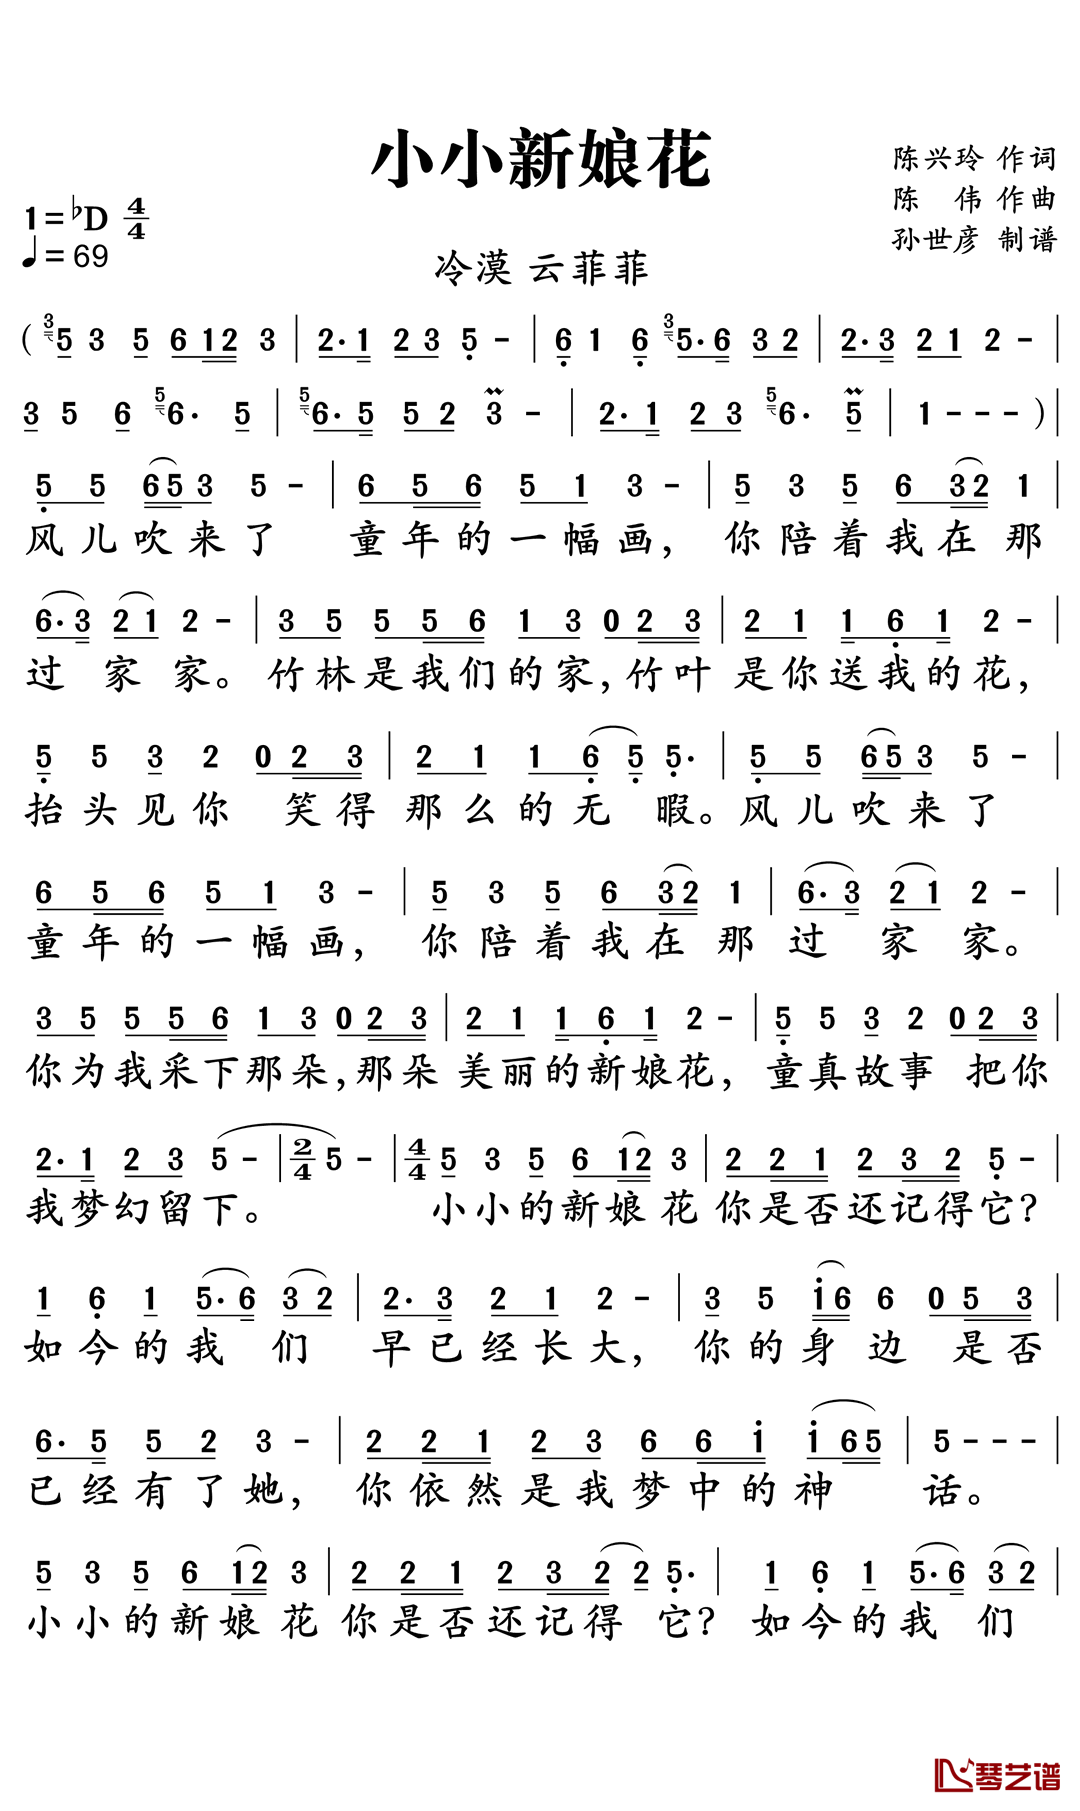 小小新娘花
陈兴玲 作词
陈 伟 作曲
孙世彦 制谱
1=♭D 4/4
♩=69
冷漠 云菲菲
( 3 5 3 5 6 1 2 3 | 2· 1 2 3 5 - | 6 1 6 3 5· 6 3 2 | 2· 3 2 1 2 - |
3 5 6 5 6· 5 | 5 6· 5 5 2 3 - | 2· 1 2 3 5 6· 5 | 1 - - - ) |
5 5 6 5 3 5 - | 6 5 6 5 1 3 - | 5 3 5 6 3 2 1 |
风儿吹来了 童年的一幅画，你陪着我在那
6· 3 2 1 2 - | 3 5 5 5 6 1 3 0 2 3 | 2 1 1 6 1 2 - |
过 家 家。竹林是我们的家，竹叶 是你送我的花，
5 5 3 2 0 2 3 | 2 1 1 6 5 5· | 5 5 6 5 3 5 - |
抬头见你 笑得 那么的无 暇。风儿吹来了
6 5 6 5 1 3 - | 5 3 5 6 3 2 1 | 6· 3 2 1 2 - |
童年的一幅画，你陪着我在那 过 家 家。
3 5 5 5 6 1 3 0 2 3 | 2 1 1 6 1 2 - | 5 5 3 2 0 2 3 |
你为我采下那朵，那朵 美丽的新娘花，童真故事 把你
2· 1 2 3 5 - | 2/4 5 - | 4/4 5 3 5 6 1 2 3 | 2 2 1 2 3 2 5 - |
我梦幻留下。 小小的新娘花 你是否还记得它？
1 6 1 5· 6 3 2 | 2· 3 2 1 2 - | 3 5 1 6 6 0 5 3 |
如今的我 们 早已经长大，你的身边 是否
6· 5 5 2 3 - | 2 2 1 2 3 6 6 1 1 6 5 | 5 - - - |
已经有了她，你依然是我梦中的神 话。
5 3 5 6 1 2 3 | 2 2 1 2 3 2 2 5· | 1 6 1 5· 6 3 2 |
小小的新娘花 你是否还记得 它？如今的我 们
琴艺谱